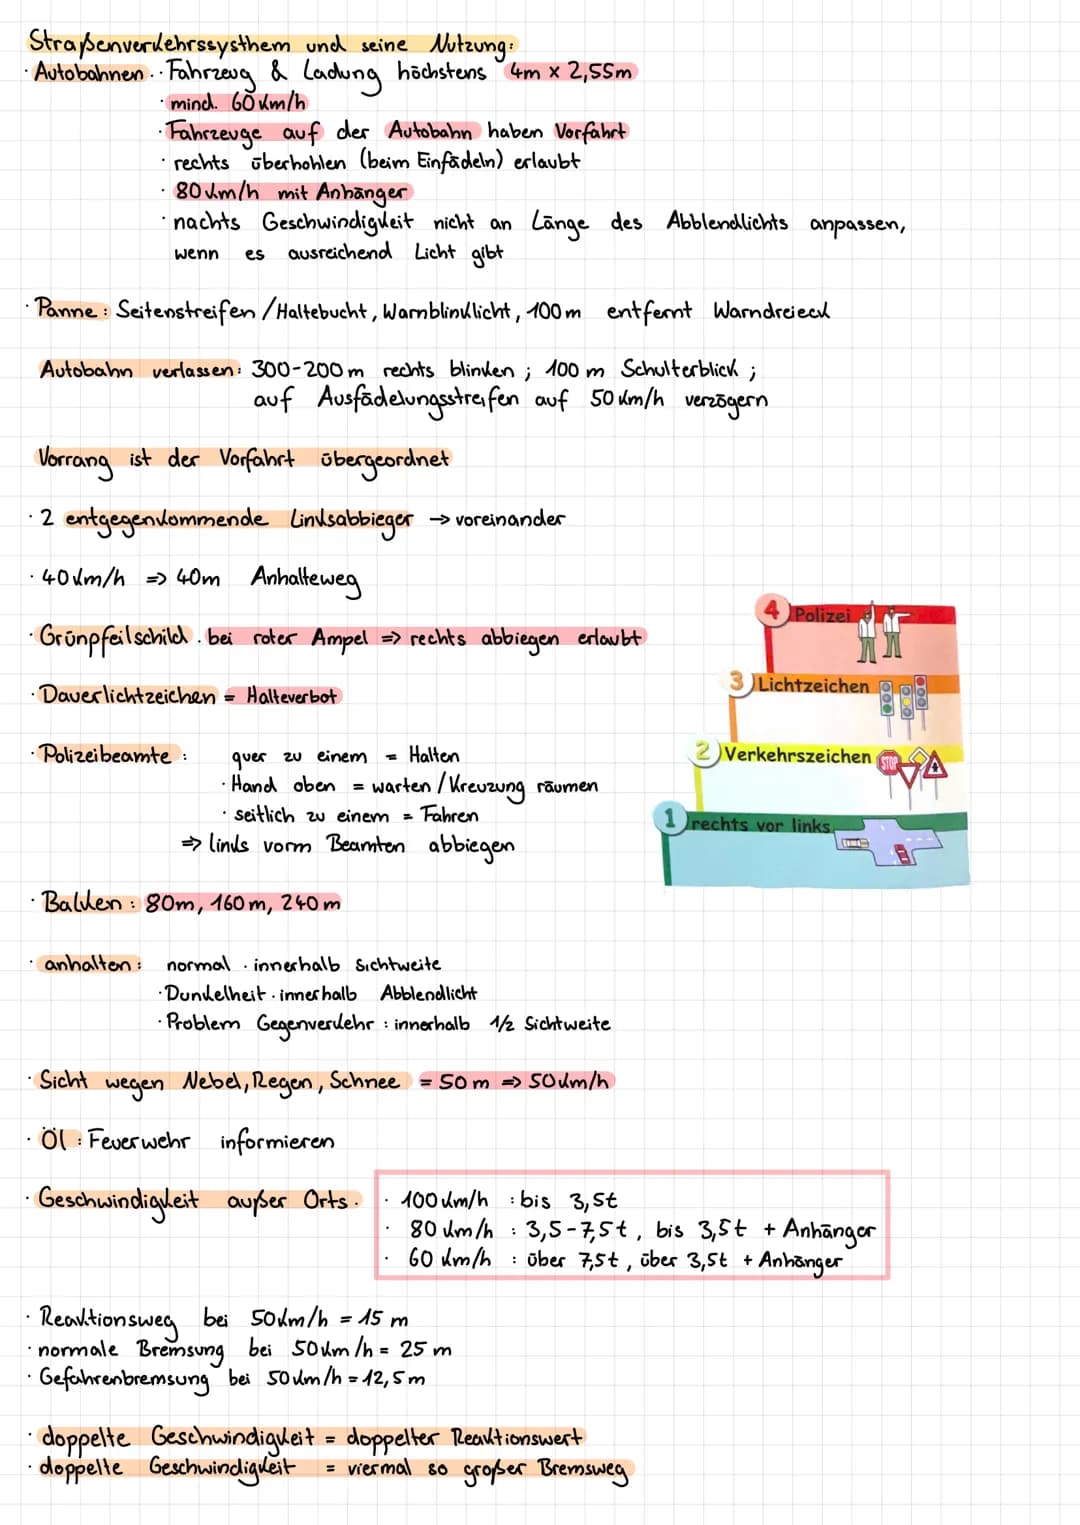 Straßenverkehrssysthem und seine Nutzung:
· Autobahnen · · Fahrzeug & Ladung höchstens 4m x 2,55m
· mind. 60 km/h
· Fahrzeuge auf der Autobahn haben Vorfahrt
· rechts überhohlen (beim Einfädeln) erlaubt
· 80 km/h mit Anhänger
· nachts Geschwindigkeit nicht an Länge des Abblendlichts anpassen,
wenn es ausreichend Licht gibt
· Panne: Seitenstreifen / Haltebucht, Warnblinklicht, 100m entfernt Warndreieck
Autobahn verlassen: 300-200m rechts blinken ; 100 m Schulterblick ;
auf Ausfädelungsstreifen auf 50 km/h verzögern
Vorrang ist der Vorfahrt übergeordnet
· 2 entgegenkommende Linksabbieger → voreinander
· 40 km/h => 40m Anhalteweg
· Grünpfeilschild · bei roter Ampel => rechts abbiegen erlaubt
· Dauerlichtzeichen = Halteverbot
· Polizeibeamte : quer zu einem = Halten
· Hand oben = warten / Kreuzung räumen
· seitlich zu einem = Fahren
=> links vorm Beamten abbiegen
4 Polizei
3 Lichtzeichen
2 Verkehrszeichen STOP
1 rechts vor links
· Balken : 80m, 160m, 240m
· anhalten: normal · innerhalb Sichtweite
· Dunkelheit · innerhalb Abblendlicht
· Problem Gegenverkehr : innerhalb 1/2 Sichtweite
· Sicht wegen Nebel, Regen, Schnee = 50m => 50 km/h
· Öl : Feuerwehr informieren
· Geschwindigkeit außer Orts ·
· 100 km/h : bis 3,5t
· 80 km/h : 3,5-7,5t, bis 3,5t + Anhänger
· 60 km/h : über 7,5t, über 3,5t + Anhänger
· Reaktionsweg bei 50km/h = 15 m
· normale Bremsung bei 50km/h = 25 m
· Gefahrenbremsung bei 50km/h = 12,5m
· doppelte Geschwindigkeit = doppelter Reaktionswert
· doppelte Geschwindigkeit = viermal so großer Bremsweg